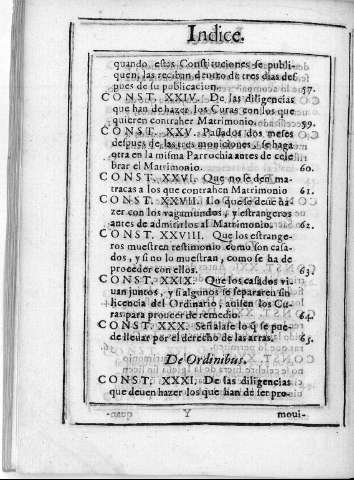 Indice.
quando estas Constituciones se publi-
quen, las reciban dentro de tres dias des
pues de su publicacion. 57.
CONST. XXIV. De las diligencias
que han de hazer los Curas con los que
quieren contraher Matrimonio. 59.
CONST. XXV. Passados dos meses
despues de las tres moniciones, se haga
otra en la misma Parrochia antes de cele
brar el Matrimonio. 60.
CONST. XXVI. Que no se den ma-
tracas a los que contrahen Matrimonio 61.
CONST. XXVII. Lo que se deue ha-
zer con los vagamundos, y estrangeros
antes de admitirlos al Matrimonio. 62.
CONST. XXVIII. Que los estrange-
ros muestren testimonio como son casa-
dos, y si no lo muestran, como se ha de
proceder con ellos. 63.
CONST. XXIX. Que los casados vi-
uan juntos, y si algunos se separaren sin
licencia del Ordinario, auisen los Cu-
ras para proueer de remedio. 64.
CONST. XXX. Señalase lo q̃ se pue-
de lleuar por el derecho de las arras. 65.
De Ordinibus.
CONST. XXXI. De las diligencias
que deuen hazer los que han de ser pro-
Y moui-